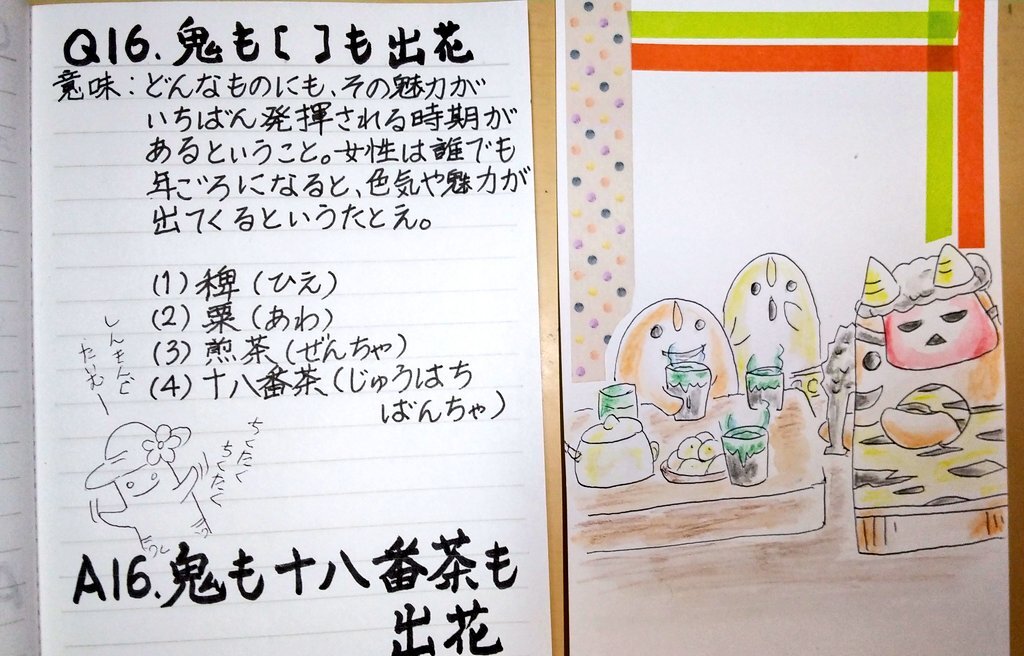 Q16.鬼も[ ]も出花
意味:どんなものにも、その魅力が
いちばん発揮される時期が
あるということ。女性は誰でも
年ごろになると、色気や魅力が
出てくるというたとえ。
(1)稗(ひえ)
(2)粟(あわ)
(3)煎茶(ぜんちゃ)
(4)十八番茶(じゅうはち
ばんちゃ)
しんきんぐ
たいむー
ちくたく
ちくたく
A16.鬼も十八番茶も
出花